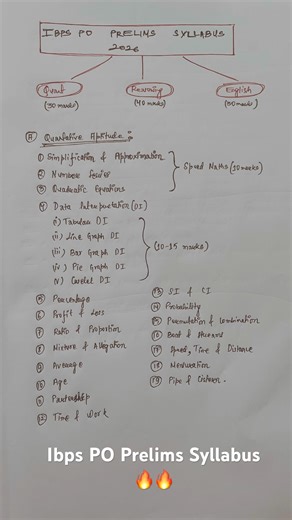 IBPS PO PRELIMS SYLLABUS
2026
Quant
Reasoning
English
(30 marks)
(40 marks)
(30 marks)
(A) Quantitative Aptitude :-
① Simplification & Approximation
② Number Series
③ Quadratic Equations
Speed Maths (10 marks)
④ Data Interpretation (DI)
(i) Tabular DI
(ii) Line Graph DI
(iii) Bar Graph DI
(iv) Pie Graph DI
(v) Caselet DI
(10-15 marks)
⑤ Percentage
⑥ Profit & Loss
⑦ Ratio & Proportion
⑧ Mixture & Allegation
⑨ Average
⑩ Age
Partnership
⑫ Time & Work
⑬ SI & CI
⑭ Probability
⑮ Permutation & Combination
⑯ Boat & Streams
⑰ Speed, Time & Distance
⑱ Mensuration
⑲ Pipe & Cistern.
Ibps PO Prelims Syllabus
🔥🔥